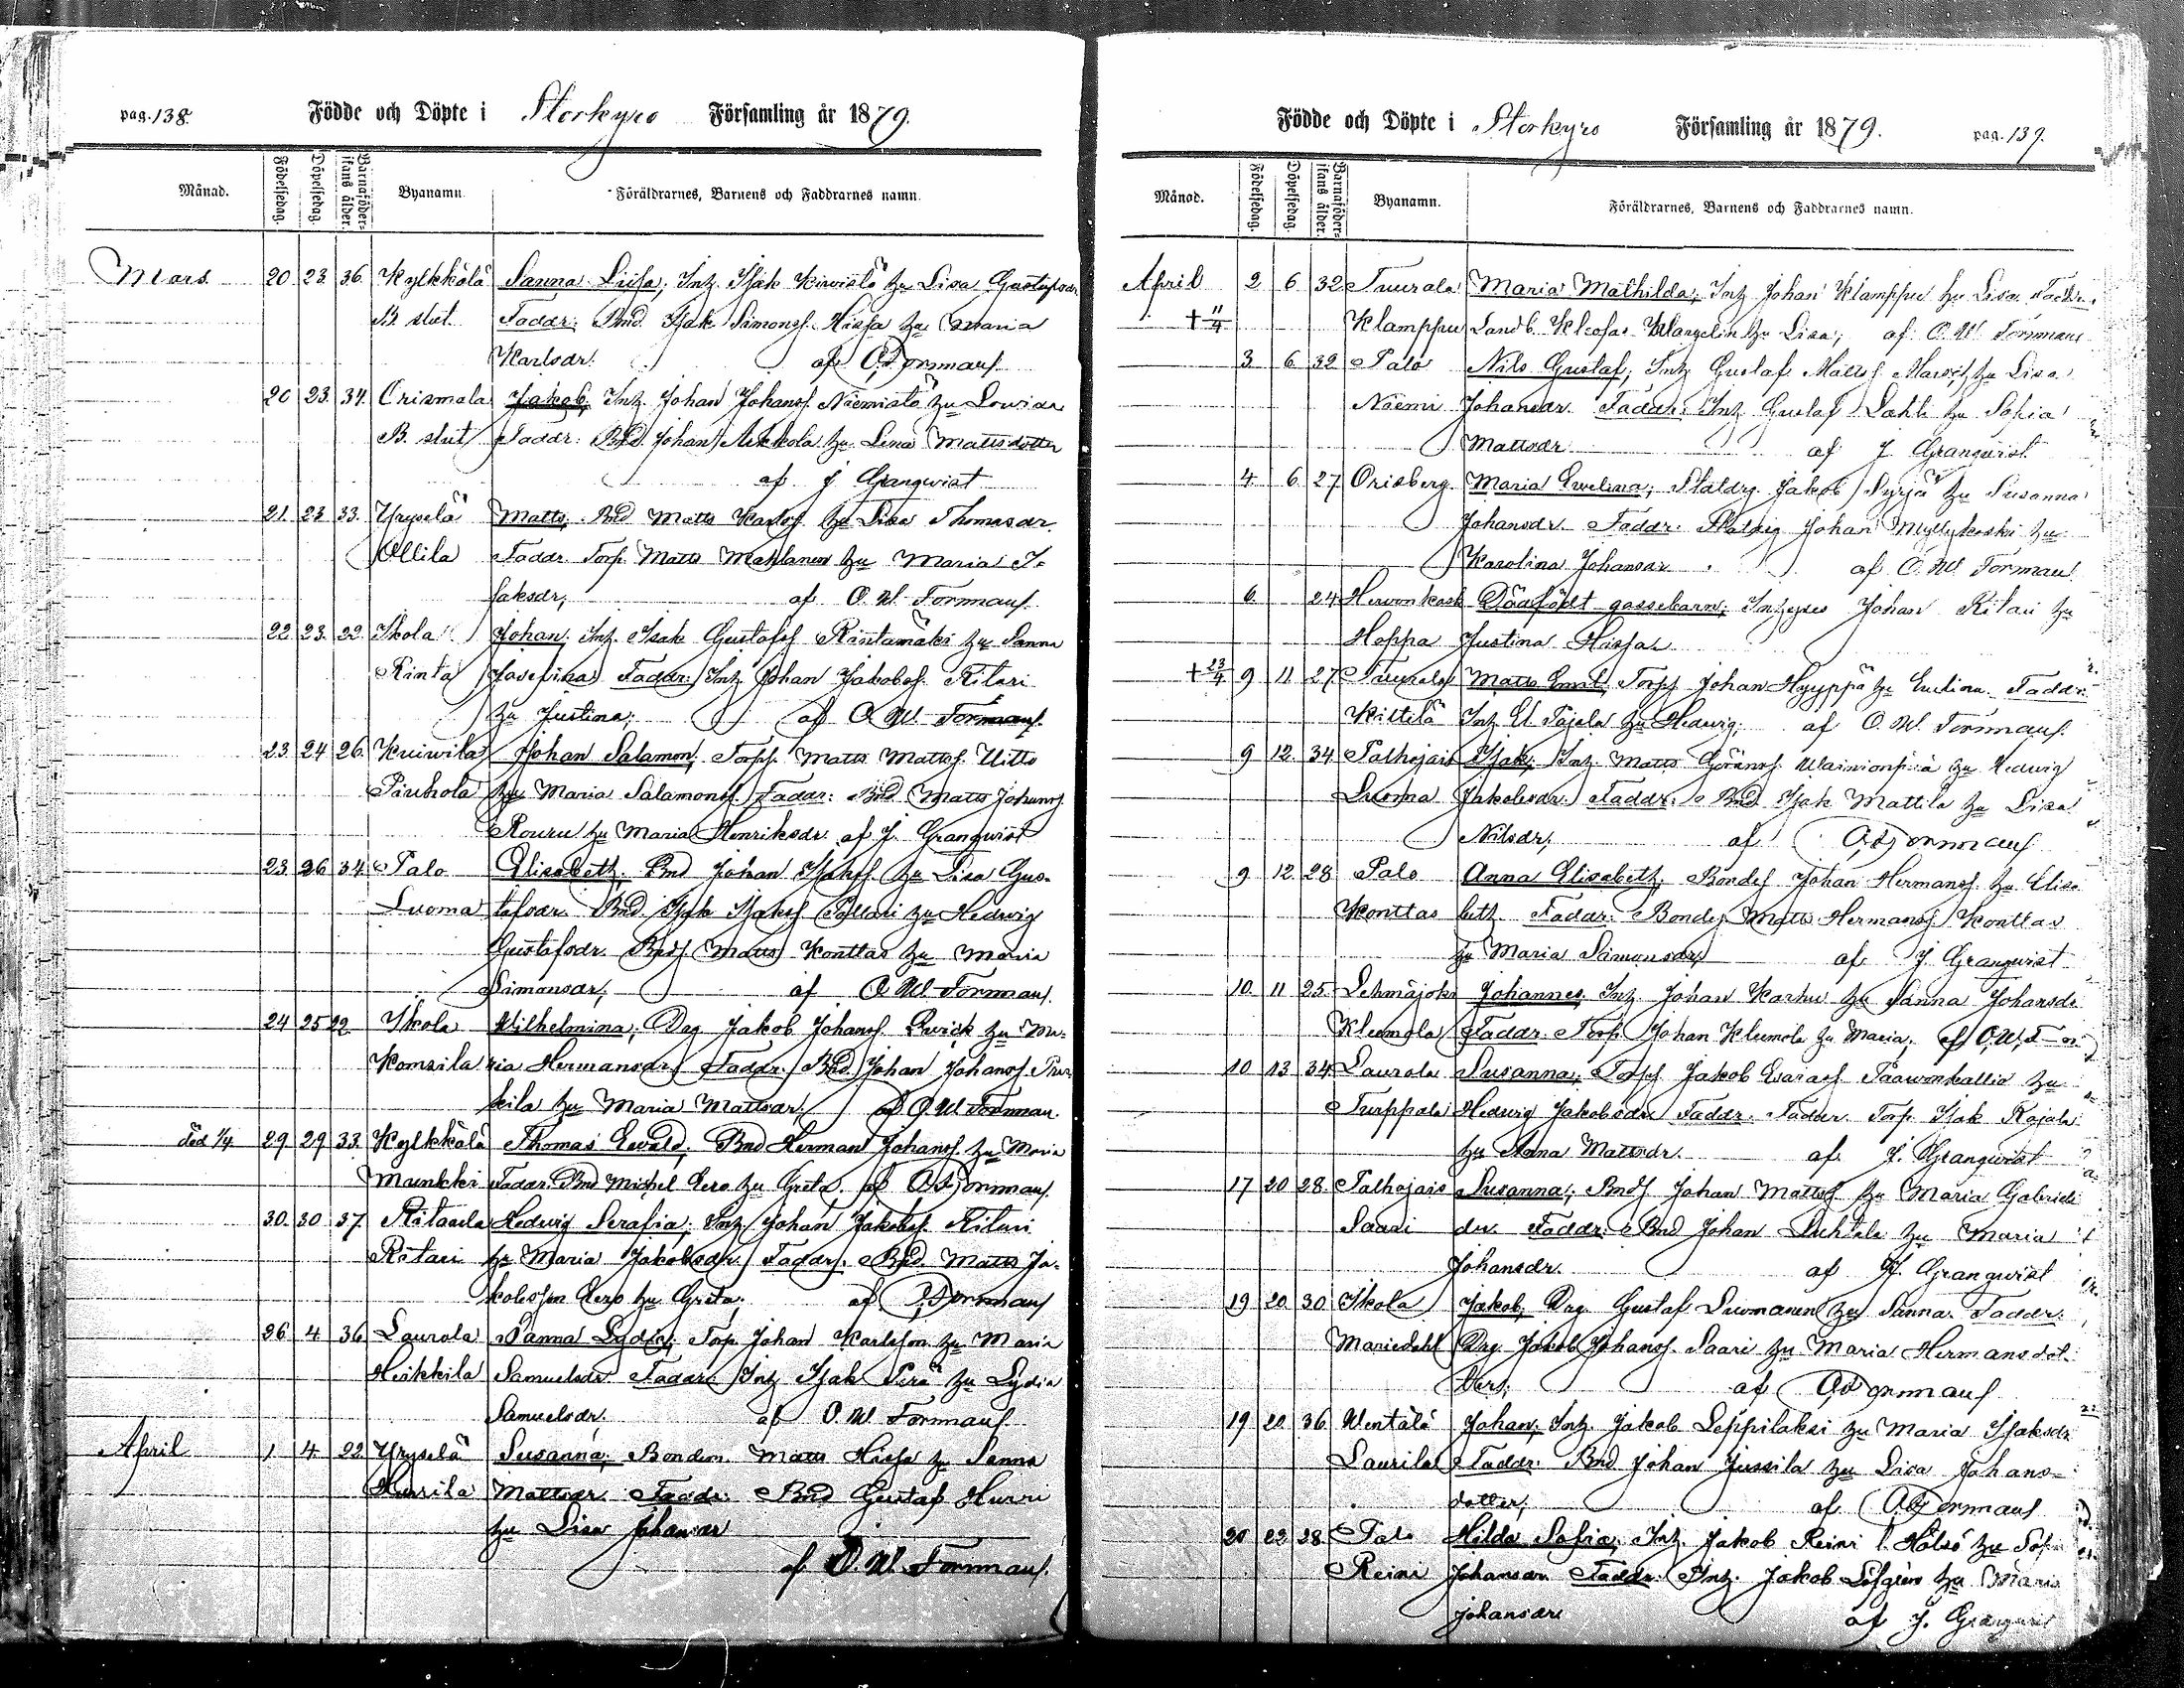 pag. 138.
Födde och Döpte i Storkyro Församling år 1879.
Månad. Födelsedag. Döpelsedag. Barnaföderskans ålder. Byanamn. Föräldrarnes, Barnens och Faddrarnes namn.
Mars 20 23 36 Kylkkälä Sanna Liisa, Inh. Isak Kiviistö hu Lisa Gustafsdr
B. slut Faddr: Bnd. Isak Simonss. Hissa hu Maria
Karlsdr. af O. Formans
20 23 34 Orismala Jakob, Inh. Johan Johanss. Niemistö hu Lovisa
B. slut Faddr: Bnd Johan Sikkola hu Lena Mattsdotter
af J Granqwist
21 23 33 Yryselä Matts, Bnd Matts Karlss. hu Lisa Thomasdr.
Ollila Faddr. Torp. Matts Mahlanen hu Maria I-
saksdr, af O. W. Formans.
22 23 22 Ikola Johan, Inh. Isak Gustafss Rintamäki hu Sanna
Rinta Josefina Faddr: Inh Johan Jakobss. Ritari
hu Justina, af O. W. Formans.
23 24 26 Kuivila Johan Salamon, Torp. Matts Mattss. Uitto
hu Maria Salamonsd. Faddr: Bnd Matts Johanss.
Rouru hu Maria Henriksdr. af J. Granqwist
23 26 34 Palo Elisabeth. Bnd Johan Isakss. hu Lisa Gus-
Luoma tafsdr. Bnd Isak Isakss Pollari hu Hedwig
Gustafsdr. Bnds. Matts Konttas hu Maria
Simonsdr, af O W. Formans.
24 25 22 Ikola Wilhelmina, Drg Jakob Johanss. hu Ma-
Komsila ria Hermansdr. Faddr. Bnd Johan Johanss.
kila hu Maria Mattsdr. af O. W. Forman.
död 1/4 29 29 33 Kylkkälä Thomas Ewald, Bnd Herman Johanss. hu Maria
Munkki Faddr. Bnd Michel Eero hu Greta. af O. Formans.
30 30 37 Ritaala Hedwig Serafia, Inh Johan Jakobss. Ritari
Ritari hu Maria Jakobsdr. Faddr. Bnd. Matts Ja-
kobsson Eero hu Greta, af O. Formans
26 4 36 Laurola Sanna Lydia, Torp Johan Karlsson hu Maria
Heikkilä Samuelsdr. Faddr. Inh Isak Perä hu Lydia
Samuelsdr. af O. W. Formans.
April 1 4 22 Yryselä Susanna, Bonden Matts Hissa hu Sanna
Hurrila Mattsdr. Faddr. Bnd Gustaf Hurri
hu Lisa Johansdr
af O. W. Formans.
Födde och Döpte i Storkyro Församling år 1879. pag. 139.
Månad. Födelsedag. Döpelsedag. Barnaföderskans ålder. Byanamn. Föräldrarnes, Barnens och Faddrarnes namn.
April 2 6 32 Tuurala Maria Mathilda, Inh Johan Klamppu hu Lisa Faddr.
+ 11/4 Klamppu Landb. Kleofas hu Lisa, af O. W. Formans
3 6 32 Palo Nils Gustaf, Inh Gustaf Mattss hu Lisa
Niemi Johansdr. Faddr. Inh Gustaf Lahti hu Sofia
Mattsdr af J Granqwist
4 6 27 Orisberg Maria Ewelina, Staldrg. Jakob Syrjä hu Susanna
Johansdr. Faddr. Staldrg Johan Myllykoski hu
Karolina Johansdr. af O. W. Forman
6 24 Hewonkoski Dödfödt gossebarn, Johan Ritari hu
Hoppa Justina Hissa
+ 23/4 9 11 27 Tuurala Matts Emil, Torps Johan Hyyppä hu Eulina. Faddr:
Kittilä Inh hu Hedwig, af O. W. Formans.
9 12 34 Palhojais Isak, Inh. Matts Göranss. Wainionpää hu Hedwig
Luoma Jakobsdr. Faddr. Bnd Isak Mattila hu Lisa
Nilsdr, af O. Formans
9 12 28 Palo Anna Elisabeth, Bondes Johan Hermanss. hu Elisa
Konttas beth. Faddr: Bondes Matts Hermanss. Konttas
hu Maria Simonsdr, af J Granqwist
10 11 25 Lehmäjoki Johannes, Inh. Johan Karhu hu Sanna Johansdr
Kleemola Faddr. Torp. Johan Kleemola hu Maria, af O. W. F
10 13 34 Laurola Susanna, Torps. Jakob Esaiass Taawonkallio hu
Turppala Hedwig Jakobsdr. Faddr. Faddr. Torp. Isak Rajala
hu Anna Mattsdr. af J. Granqwist
17 20 28 Palhojais Susanna, Bnds Johan Mattss hu Maria Gabriels
Saari dr. Faddr. Bnd Johan Luhtala hu Maria
Johansdr. af J. Granqwist
19 20 30 Ikola Jakob, Drg. Gustaf Luomanen hu Sanna. Faddr.
Mariedahl Drg. Jakob Johanss. Saari hu Maria Hermansdot-
ters, af O. Formans
19 20 36 Wentälä Johan, Inh. Jakob Leppilaksi hu Maria Isaksdr
Laurila Faddr. Bnd Johan Jussila hu Lisa Johans-
dotter, af O. Formans
20 22 28 Palo Hilda Sofia, Inh. Jakob Reini l. Hölsö hu Sofia
Reini Johansdr. Faddr. Inh. Jakob Löfgren hu Maria
Johansdr af J. Granqwist